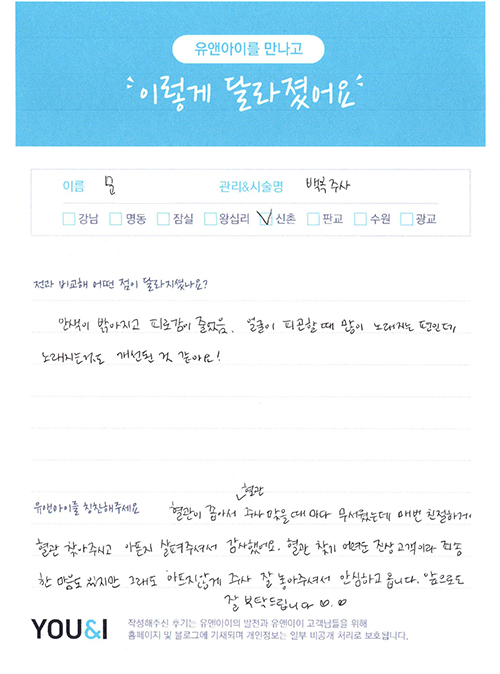 유앤아이를 만나고
이렇게 달라졌어요
이름 문 관리&시술명 백옥주사
강남 명동 잠실 왕십리 신촌 판교 수원 광교
전과 비교해 어떤 점이 달라지셨나요?
안색이 밝아지고 피로감이 줄었음. 얼굴이 피곤할 때 많이 노래지는 편인데
노래지는것도 개선된 것 같아요!
혈관
유앤아이를 칭찬해주세요 혈관이 좁아서 주사 맞을 때 마다 무서웠는데 매번 친절하게
혈관 찾아주시고 아픈지 살펴주셔서 감사했어요. 혈관 찾기 어려운 진상고객이라 죄송
한 마음도 있지만 그래도 아프지않게 주사 잘 놓아주셔서 안심하고 옵니다. 앞으로도
잘 부탁드립니다 ♡.♡
YOU&I 작성해주신 후기는 유앤아이의 발전과 유앤아이 고객님들을 위해
홈페이지 및 블로그에 기재되며 개인정보는 일부 비공개 처리로 보호됩니다.